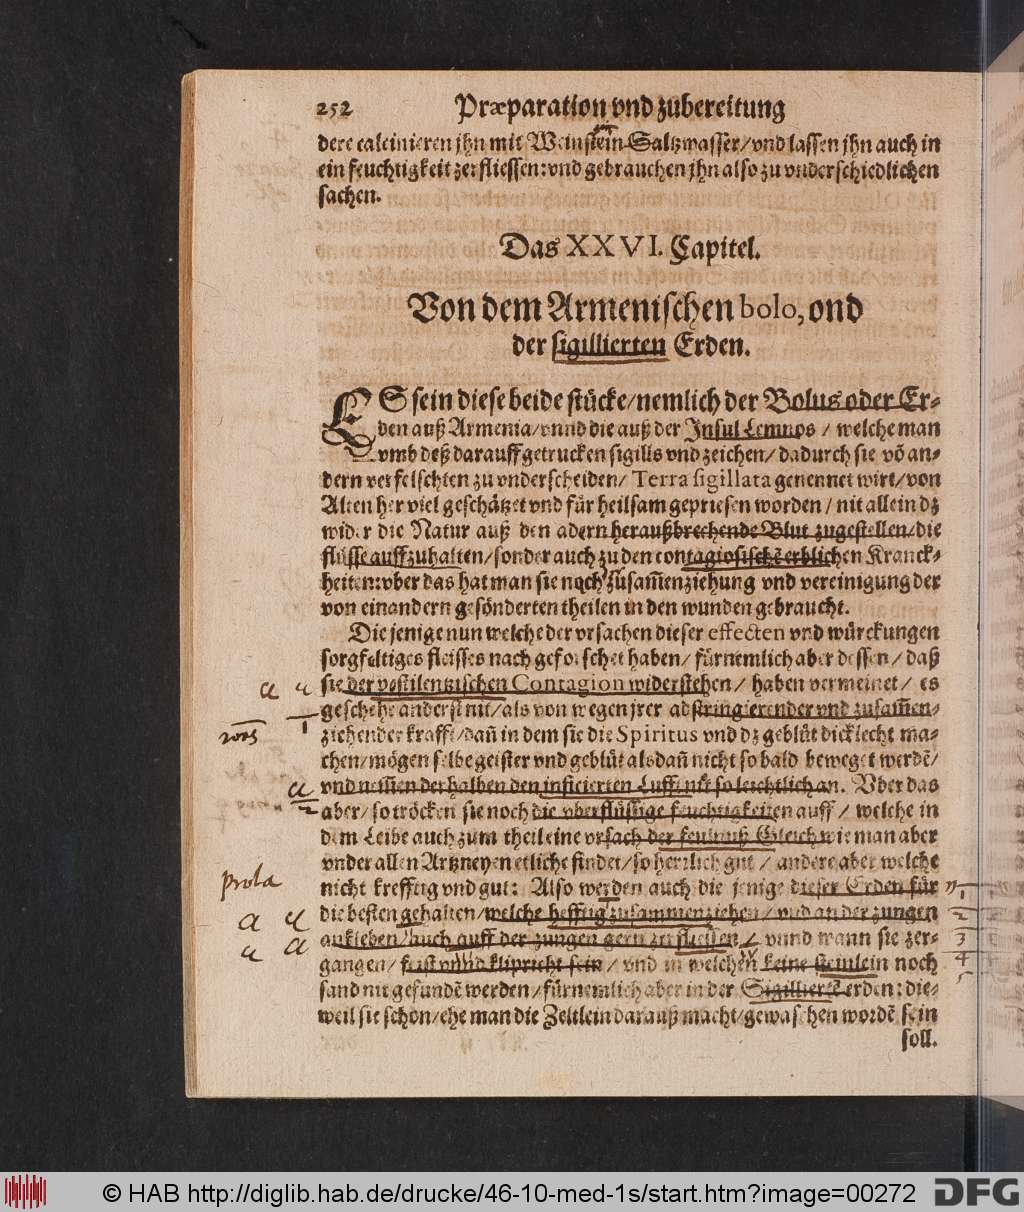 252 Præparation vnd zubereitung
dere calcinieren jhn mit Weinstein-Saltzwasser/vnd lassen jhn auch in
ein feuchtigkeit zerfliessen: vnd gebrauchen jhn also zu vnderschiedlichen
sachen.
Das XXVI. Capitel.
Von dem Armenischen bolo, ond
der sigillierten Erden.
ES sein diese beide stücke/nemlich der Bolus oder Er-
den auß Armenia/vnnd die auß der Insul Lemnos / welche man
vmb deß darauffgetrucken sigills vnd zeichen/ dadurch sie võ an-
dern verfelschten zu vnderscheiden/ Terra sigillata genennet wirt/von
Alten her viel geschätzet vnd für heilsam gepriesen worden / nit allein dz
wider die Natur auß den adern heraußbrechende Blut zugestellen/die
flüsse auffzuhalten/sonder auch zu den contagiosischẽ erblichen Kranck-
heiten: vber das hat man sie noch zusam̃enziehung vnd vereinigung der
von einandern gesönderten theilen in den wunden gebraucht.
Die jenige nun welche der vrsachen dieser effecten vnd würckungen
sorgfeltiges fleisses nachgeforschet haben/ fürnemlich aber dessen/ daß
sie der pestilentzischen Contagion widerstehen/ haben vermeinet/ es
geschehe anderst nit/als von wegen jrer adstringierender vnd zusam̃en-
ziehender krafft/dañ in dem sie die Spiritus vnd dz geblüt dicklecht ma-
chen/mögen selbe geister vnd geblüt alsdañ nicht so bald beweget werdẽ/
vnd nem̃en derhalben den inficierten Lufft nit so leichtlich an. Vber das
aber/ so tröcken sie noch die vberflüssige feuchtigkeiten auff / welche in
dem Leibe auch zum theil eine vrsach der feulnuß Gleich wie man aber
vnder allen Artzneyen etliche findet/so herrlich gut / andere aber welche
prola nicht krefftig vnd gut: Also werden auch die jenige dieser Erden für
die besten gehalten/welche hefftig zusammenziehen/ vnd an der zungen
ankleben/auch auff der zungen gern zerfliessen / vnnd wann sie zer- 3
gangen/ feist vnnd klipricht sein / vnd in welchen keine steinlein noch 4
sand nit gefundẽ werden/fürnemlich aber in der Sigilliertẽ erden: die-
weil sie schon/ehe man die Zeltlein darauß macht/gewaschen wordẽ sein
soll.
© HAB http://diglib.hab.de/drucke/46-10-med-1s/start.htm?image=00272 DFG